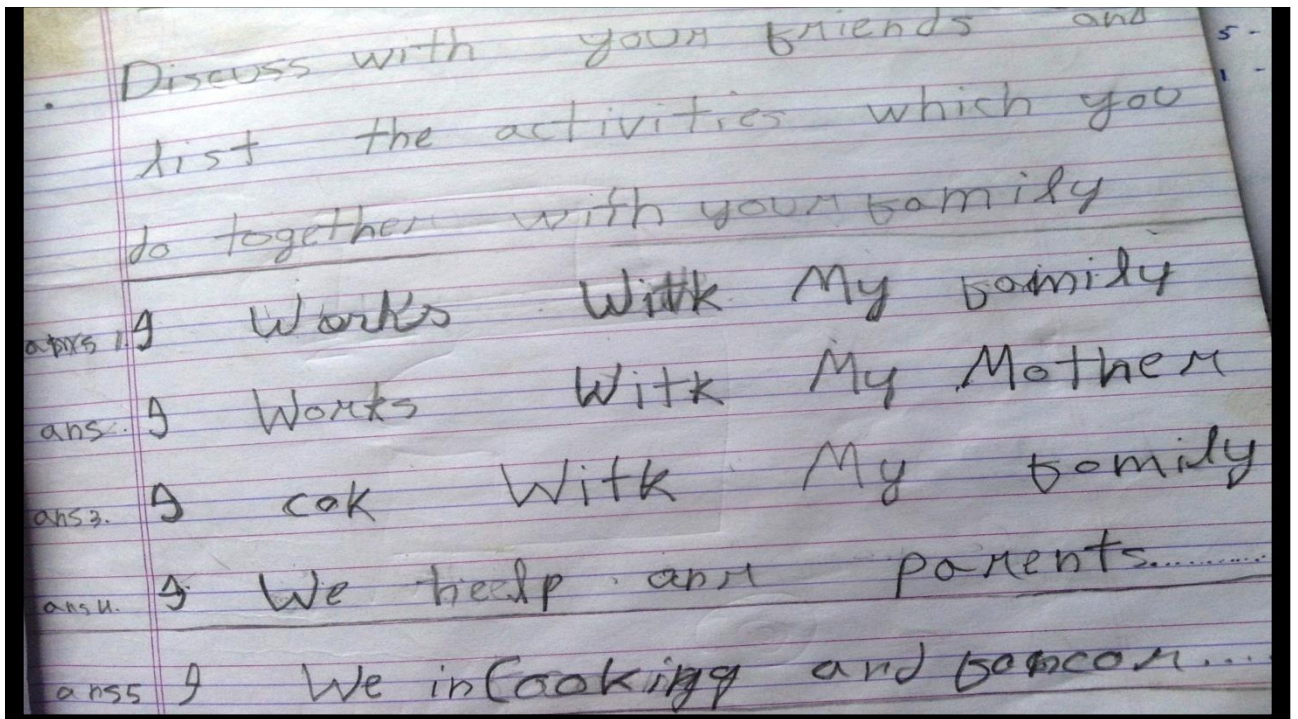 . Discuss with your friends and
list the activities which you
do together with your family
ans 1. I Works With My family
ans. I Works With My Mother
ans 3. I cok With My family
ans 4. I We heelp our parents..........
ans 5 I We in Cooking and
5 -
1 -